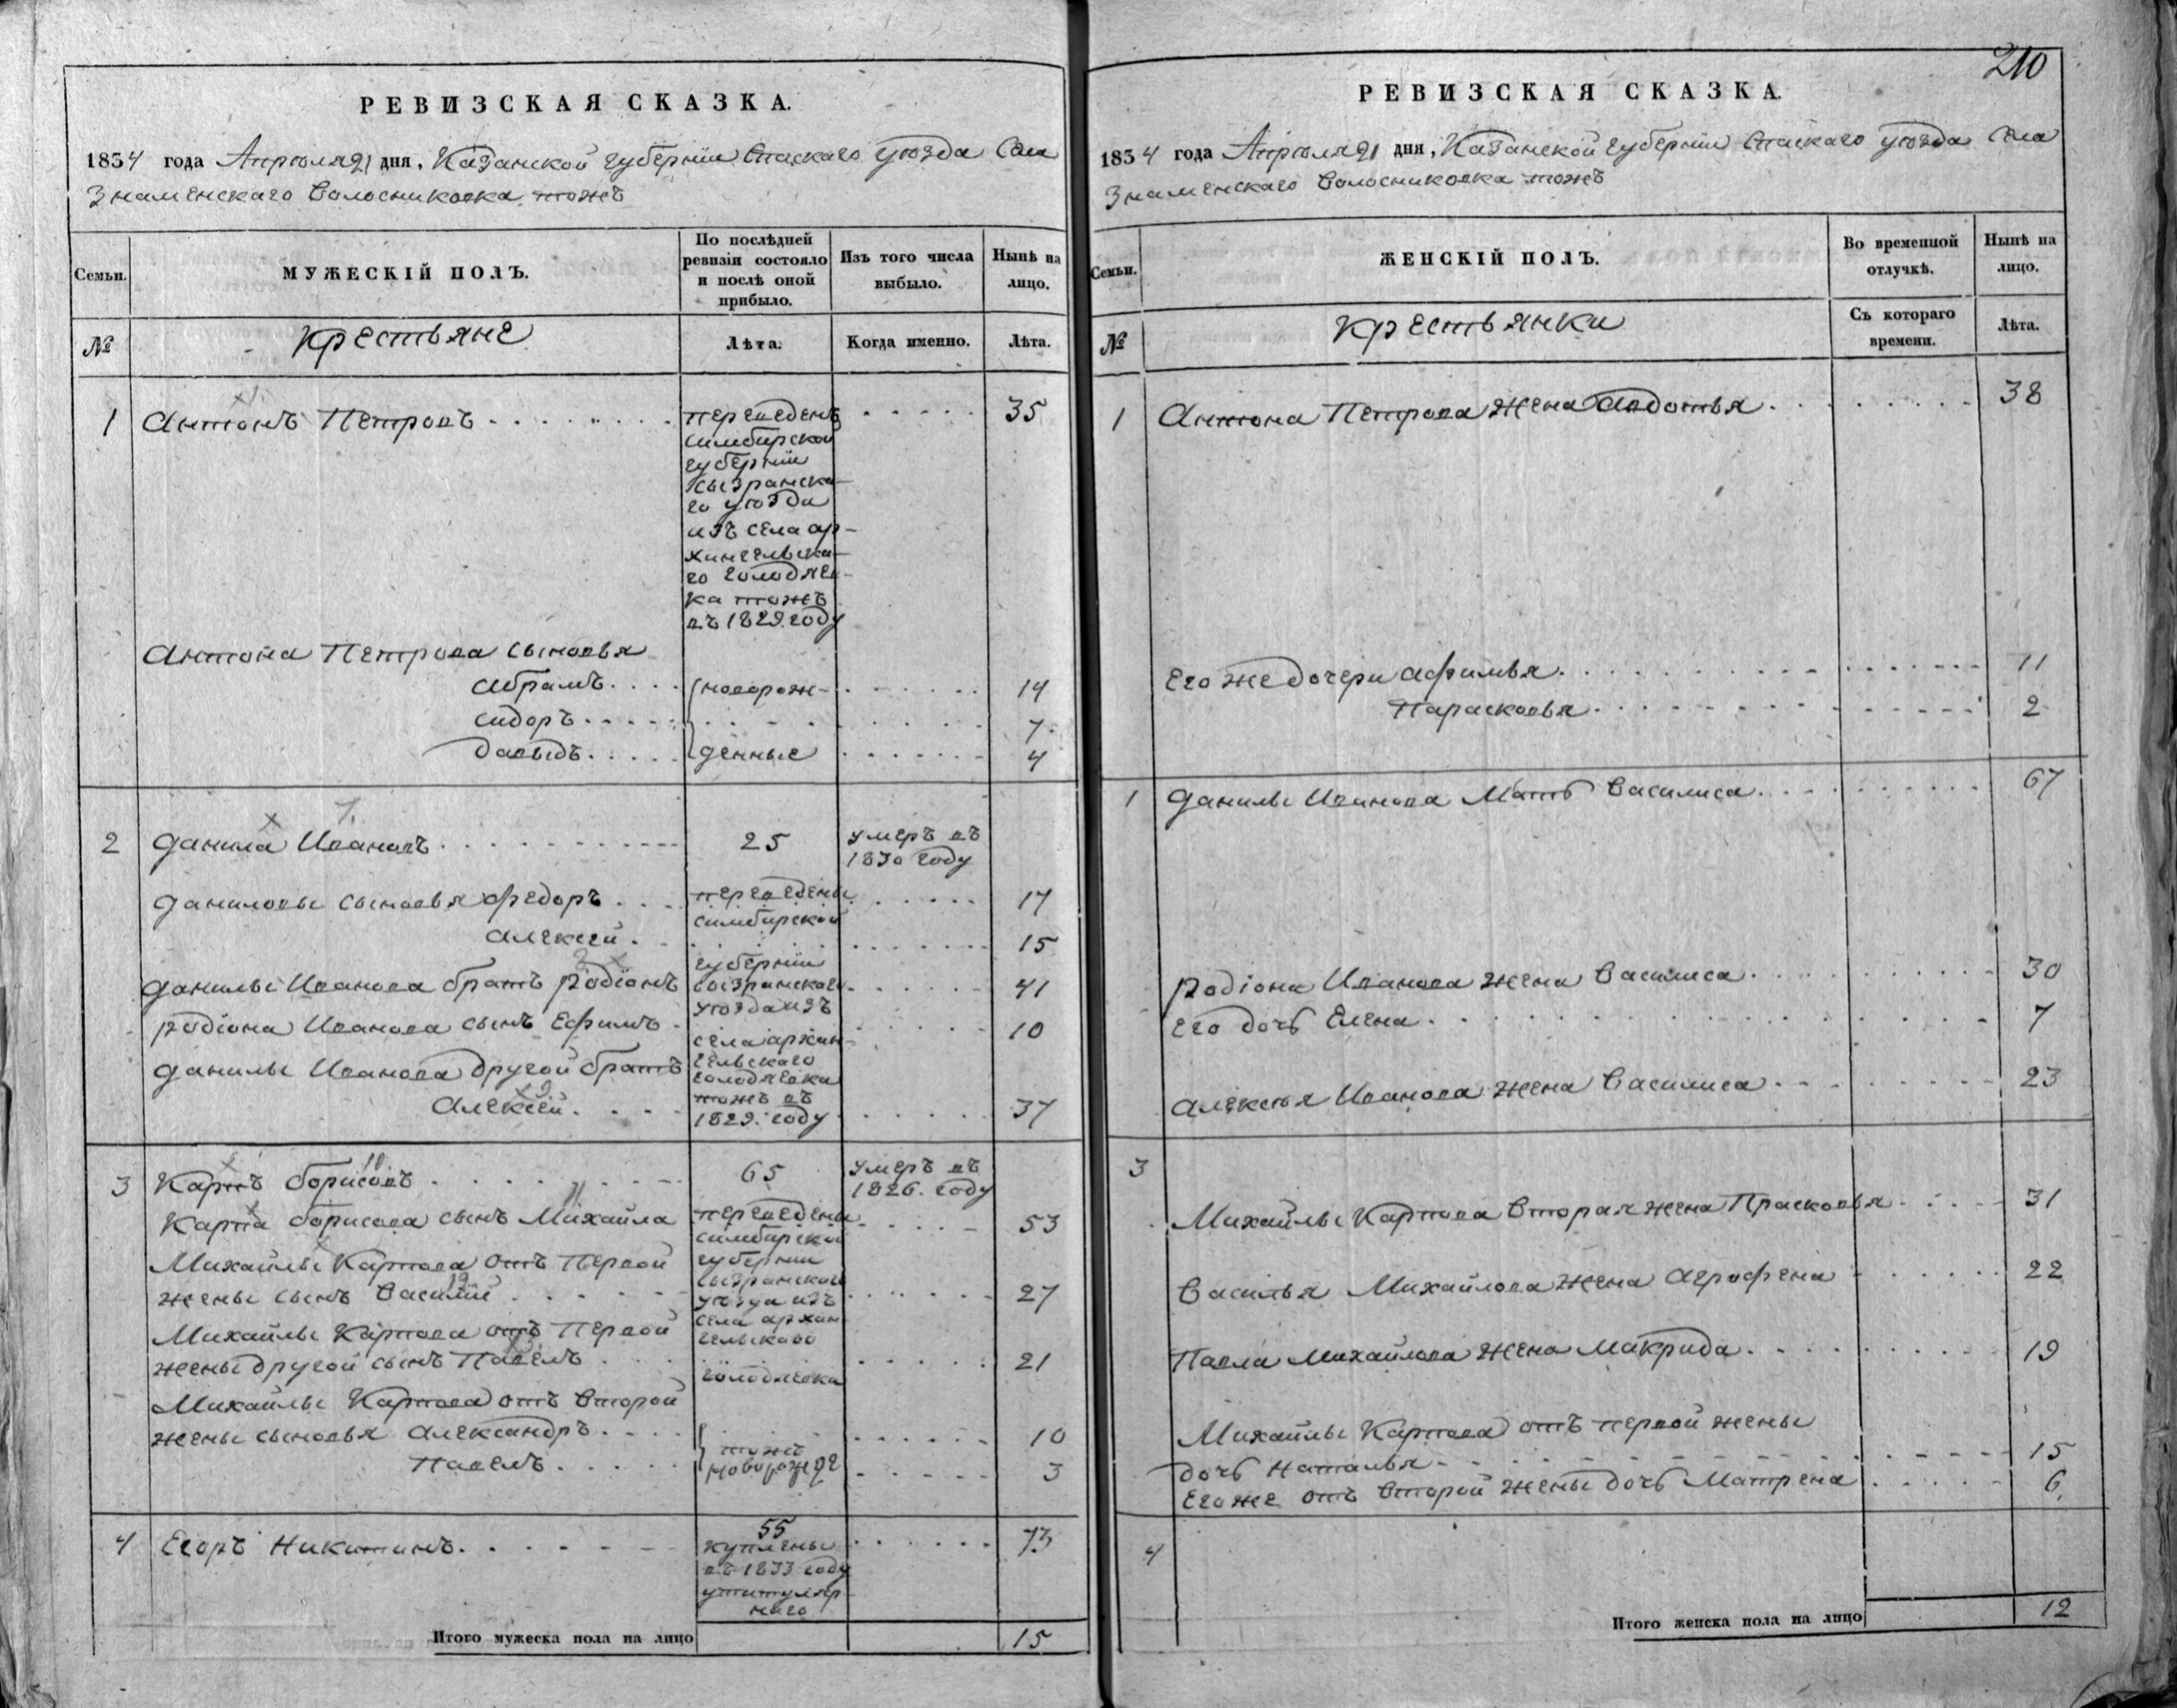 РЕВИЗСКАЯ СКАЗКА.
1834 года Апреля 21 дня, Казанской губернiи Спаскаго уѣзда Села
Знаменскаго Волосниковка тожъ
Семьи.
МУЖЕСКІЙ ПОЛЪ.
По послѣдней
ревизіи состояло
и послѣ оной
прибыло.
Изъ того числа
выбыло.
Нынѣ на
лицо.
№
Крестьяне
Лѣта.
Когда именно.
Лѣта.
1 Антонъ Петровъ 35
переведенъ
симбирской
губернiи
сызранска-
го уѣзда
изъ села ар-
хангельска-
го Голодяев-
ка тожъ
въ 1829. году
Антона Петрова сыновья
Абрамъ новорож- 14
Сидоръ 7
Давыдъ денные 4
2 Данила Ивановъ 25 умеръ въ
1830 году
Даниловы сыновья Федоръ 17
Алексей 15
Данилы Иванова братъ Родiонъ 41
Родiона Иванова сынъ Ефимъ 10
Данилы Иванова другой братъ
Алексей 37
переведены
симбирской
губернiи
сызранскаго
уѣзда изъ
села архан-
гельскаго
голодяевка
тожъ въ
1829. году
3 Карпъ Борисовъ 65 умеръ въ
1826. году
Карпа Борисова сынъ Михайла 53
Михайлы Карпова отъ Первой
жены сынъ Василiй 27
Михайлы Карпова отъ Первой
жены другой сынъ Павелъ 21
переведены
симбирской
губернии
сызранскаго
уѣзда изъ
села архан
гельскаго
голодяевки
Михайлы Карпова отъ второй
жены сыновья Александръ 10
Павелъ 3
тожъ
новорожде
4 Егоръ Никитинъ 55 73
куплены
въ 1833 году
у титуляр
наго
Итого мужеска пола на лицо 15
210
РЕВИЗСКАЯ СКАЗКА.
1834 года Апреля 21 дня, Казанской губернiи Спаскаго уѣзда Села
Знаменскаго Волосниковка тожъ
Семьи.
ЖЕНСКІЙ ПОЛЪ.
Во временной
отлучкѣ.
Нынѣ на
лицо.
№
Крестьянки
Съ котораго
времени.
Лѣта.
1 Антона Петрова жена Авдотья 38
Его же дочери Афимья 11
Парасковья 2
1 Данилы Иванова Мать Василиса 67
Родiона Иванова жена Василиса 30
Его дочь Елена 7
Алексея Иванова жена Василиса 23
3
Михайлы Карпова вторая жена Прасковья 31
Василья Михайлова жена Агрофена 22
Павла Михайлова жена Макрида 19
Михайлы Карпова отъ первой жены
дочь Наталья 15
Его же отъ второй жены дочь Матрена 6
4
Итого женска пола на лицо 12